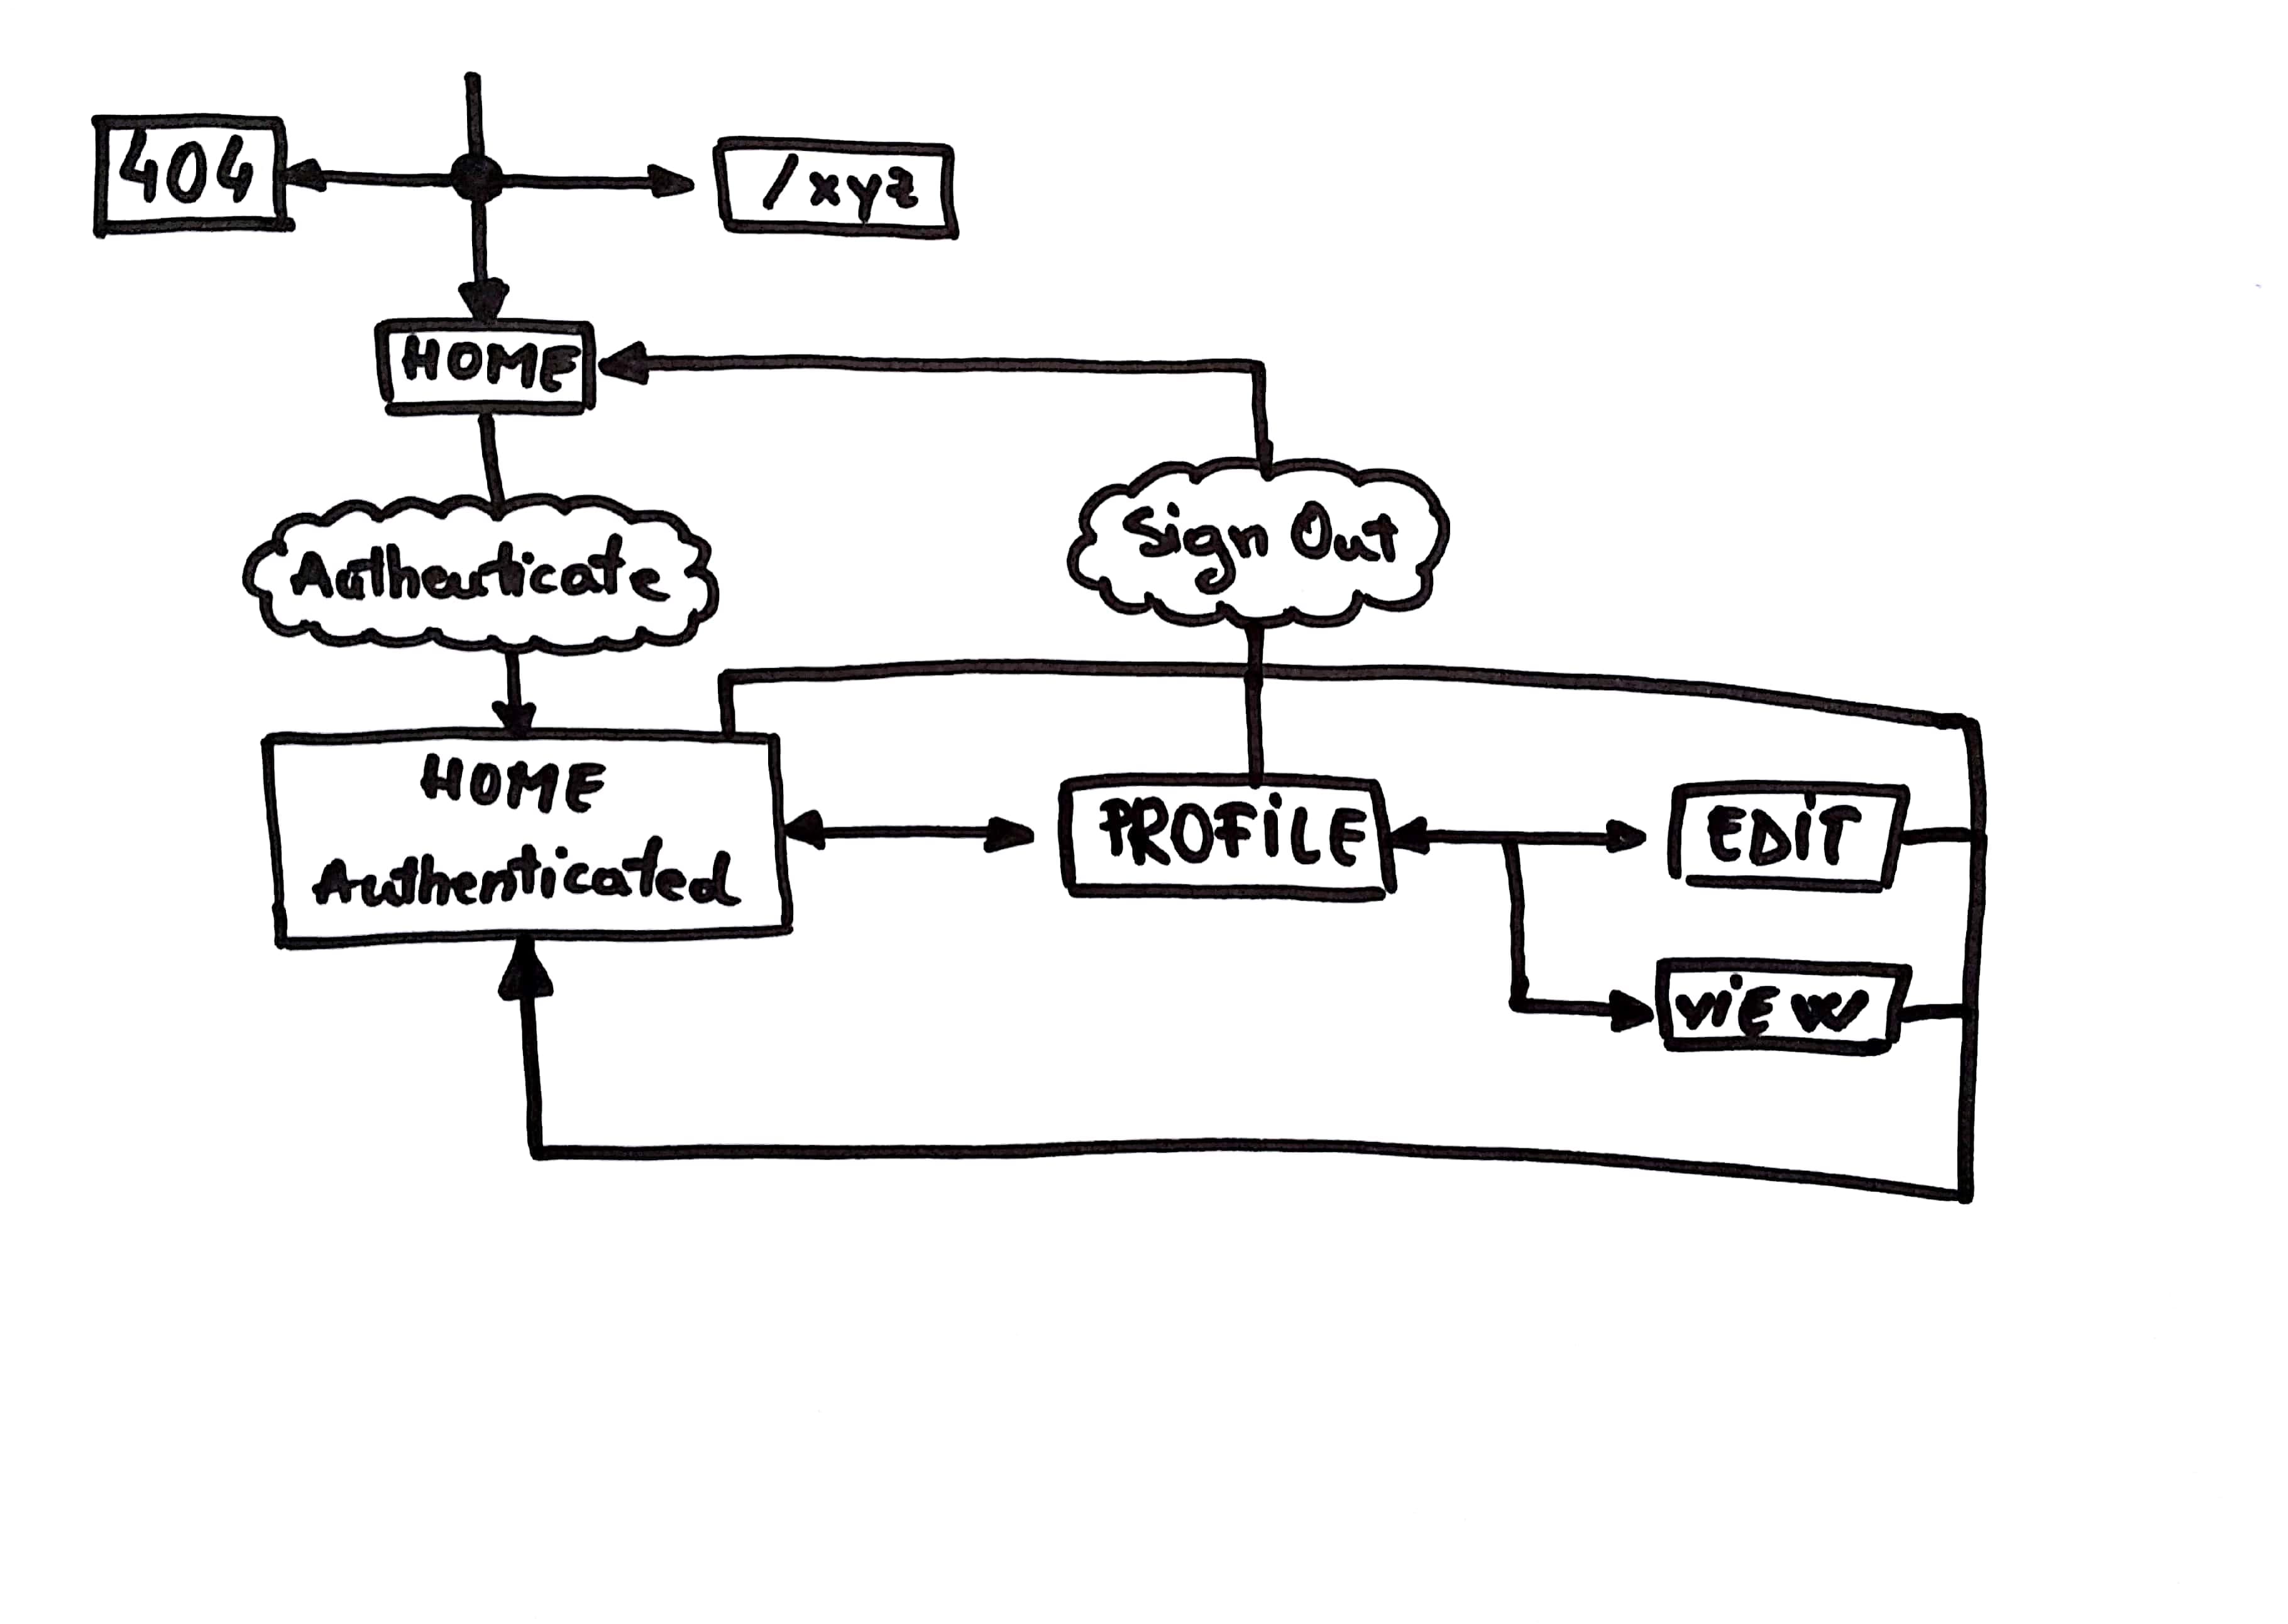 404
/xyz
HOME
Authenticate
Sign Out
HOME
Authenticated
PROFiLE
EDiT
ViEW